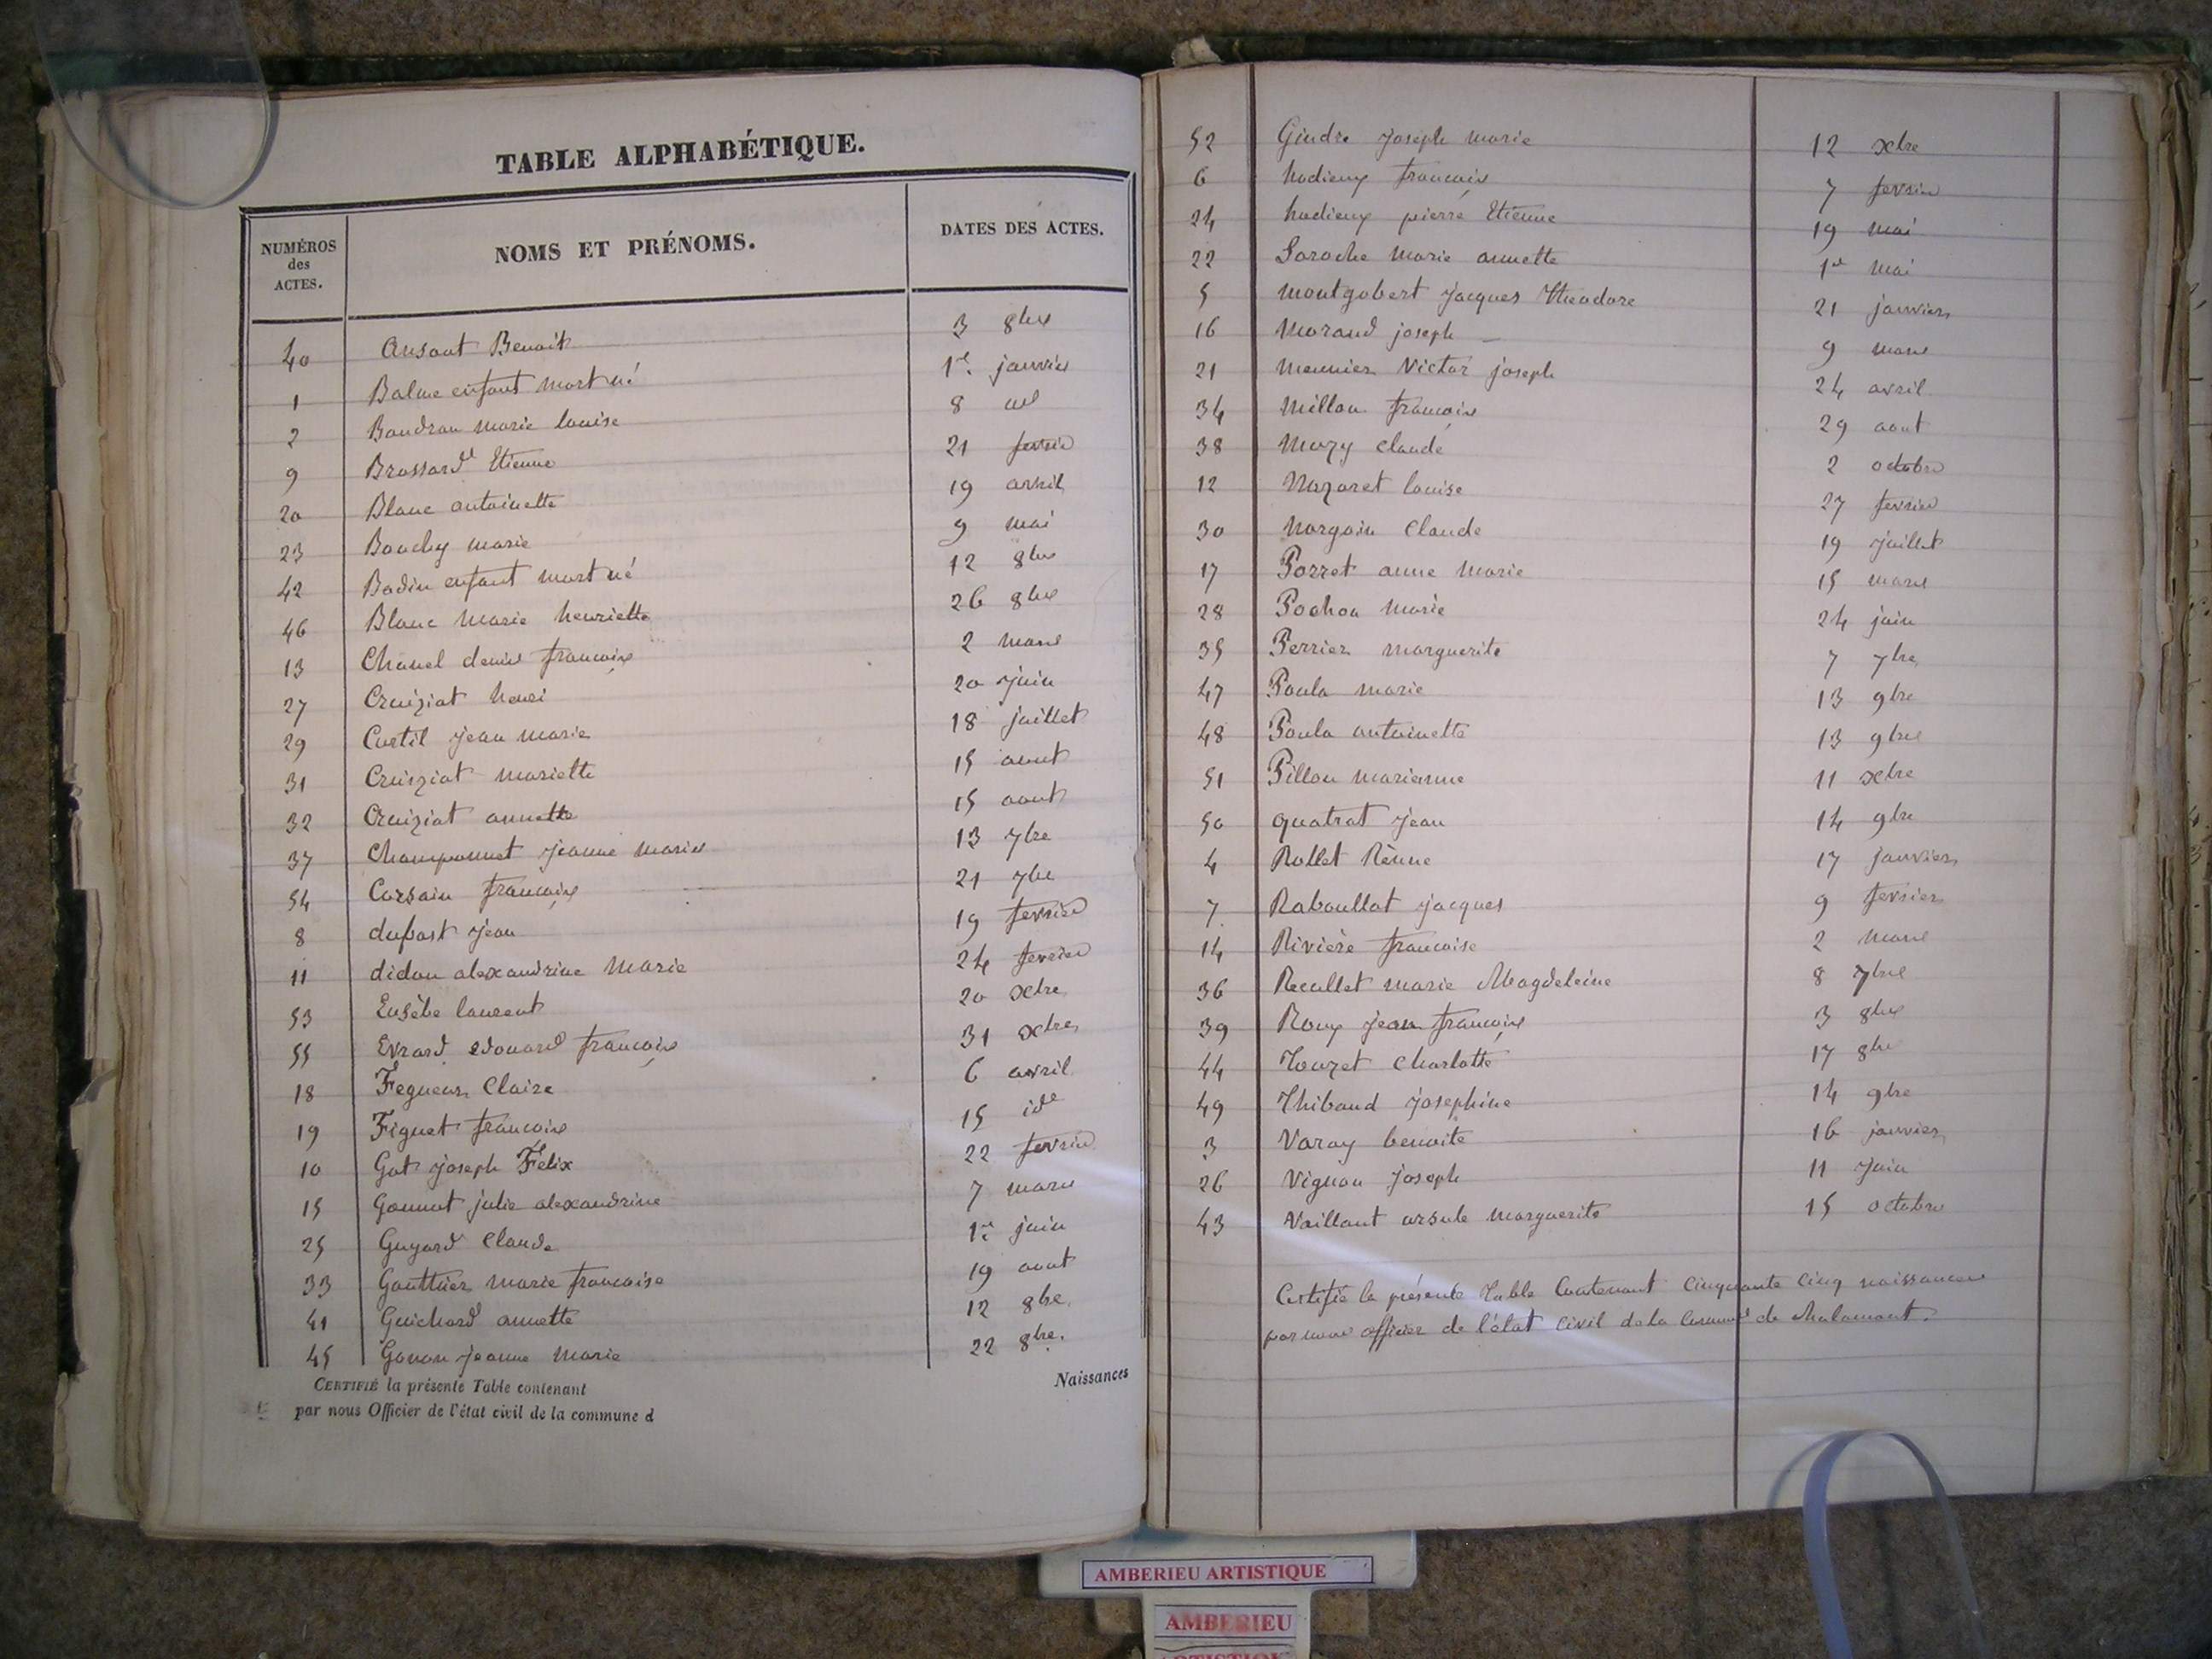 TABLE ALPHABÉTIQUE.
NUMÉROS des ACTES.
NOMS ET PRÉNOMS.
DATES DES ACTES.
40 Ansout Benoit 3 8bre
1 Balme enfant mort né 1er janvier
2 Baudran marie louise 8 id
9 Brossard Etienne 21 fevrier
20 Blanc antoinette 19 avril
23 Bouchy marie 9 mai
42 Badin enfant mort né 12 8bre
46 Blanc marie henriette 26 8bre
13 Chanel denis françois 2 mars
27 Cruiziat henri 20 juin
29 Curtil jean marie 18 juillet
31 Cruiziat mariette 15 aout
32 Cruiziat annette 15 aout
37 Champonnet jeanne marie 13 7bre
54 Corsain françois 21 xbre
8 dupast jean 19 fevrier
11 didon alexandrine marie 24 fevrier
53 Eusèbe laurent 20 xbre
55 Evrard edouard françois 31 xbre
18 Fegueux Claire 6 avril
19 Figuet françois 15 id
10 Gat joseph Felix 22 fevrier
15 Gonnot julie alexandrine 7 mars
25 Guyard Claude 1er juin
33 Gauthier marie francoise 19 aout
41 Guichard annette 12 8bre
45 Gonon jeanne marie 22 8bre.
CERTIFIÉ la présente Table contenant Naissances
par nous Officier de l'état civil de la commune d
52 Gindre joseph marie 12 xbre
6 hudieux françois 7 fevrier
24 hudieux pierre Etienne 19 mai
22 Laroche marie annette 1er mai
5 montgobert jacques théodore 21 janvier
16 morand joseph 9 mars
21 meunier Victor joseph 24 avril
34 millon françois 29 aout
38 mury claude 2 octobre
12 Nazaret louise 27 fevrier
30 Norgain Claude 19 juillet
17 Porret anne marie 15 mars
28 Pochon marie 24 juin
35 Perrier marguerite 7 7bre
47 Poula marie 13 9bre
48 Poula antoinette 13 9bre
51 Pillon marianne 11 xbre
50 quatrat jean 14 9bre
4 Rollet Rènne 17 janvier
7 Raboullat jacques 9 fevrier
14 Rivière francoise 2 mars
36 Recullet marie Magdeleine 8 7bre
39 Roux jean françois 3 8bre
44 Touzet Charlotte 17 8bre
49 Thibaud josephine 14 9bre
3 Varay benoite 16 janvier
26 Vignon joseph 11 juin
43 Vaillant ursule marguerite 15 octobre
Certifié la présente Table Contenant Cinquante Cinq naissances
par nous officier de l'état civil de la Commune de
AMBERIEU ARTISTIQUE
AMBERIEU
ARTISTIQUE